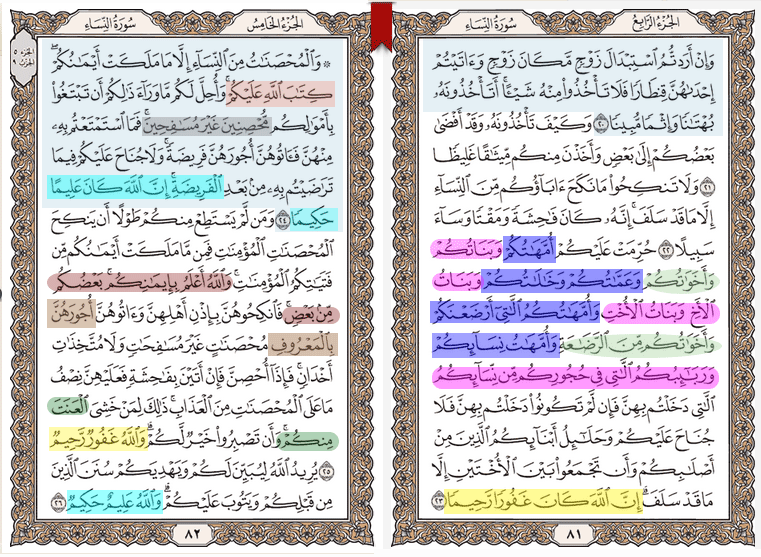 الجزء الرابع
سورة النساء
وَإِنْ أَرَدتُّمُ ٱسْتِبْدَالَ زَوْجٍ مَّكَانَ زَوْجٍ وَءَاتَيْتُمْ
إِحْدَىٰهُنَّ قِنطَارًا فَلَا تَأْخُذُوا۟ مِنْهُ شَيْـًٔا ۚ أَتَأْخُذُونَهُۥ
بُهْتَٰنًا وَإِثْمًا مُّبِينًا ٢٠ وَكَيْفَ تَأْخُذُونَهُۥ وَقَدْ أَفْضَىٰ
بَعْضُكُمْ إِلَىٰ بَعْضٍ وَأَخَذْنَ مِنكُم مِّيثَٰقًا غَلِيظًا
٢١ وَلَا تَنكِحُوا۟ مَا نَكَحَ ءَابَآؤُكُم مِّنَ ٱلنِّسَآءِ
إِلَّا مَا قَدْ سَلَفَ ۚ إِنَّهُۥ كَانَ فَٰحِشَةً وَمَقْتًا وَسَآءَ
سَبِيلًا ٢٢ حُرِّمَتْ عَلَيْكُمْ أُمَّهَٰتُكُمْ وَبَنَاتُكُمْ
وَأَخَوَٰتُكُمْ وَعَمَّٰتُكُمْ وَخَٰلَٰتُكُمْ وَبَنَاتُ
ٱلْأَخِ وَبَنَاتُ ٱلْأُخْتِ وَأُمَّهَٰتُكُمُ ٱلَّٰتِىٓ أَرْضَعْنَكُمْ
وَأَخَوَٰتُكُم مِّنَ ٱلرَّضَٰعَةِ وَأُمَّهَٰتُ نِسَآئِكُمْ
وَرَبَٰٓئِبُكُمُ ٱلَّٰتِى فِى حُجُورِكُم مِّن نِّسَآئِكُمُ
ٱلَّٰتِى دَخَلْتُم بِهِنَّ فَإِن لَّمْ تَكُونُوا۟ دَخَلْتُم بِهِنَّ فَلَا
جُنَاحَ عَلَيْكُمْ وَحَلَٰٓئِلُ أَبْنَآئِكُمُ ٱلَّذِينَ مِنْ
أَصْلَٰبِكُمْ وَأَن تَجْمَعُوا۟ بَيْنَ ٱلْأُخْتَيْنِ إِلَّا
مَا قَدْ سَلَفَ ۗ إِنَّ ٱللَّهَ كَانَ غَفُورًا رَّحِيمًا ٢٣
٨١
الجزء الخامس
سورة النساء
الجزء ٥
الحزب ٩
۞ وَٱلْمُحْصَنَٰتُ مِنَ ٱلنِّسَآءِ إِلَّا مَا مَلَكَتْ أَيْمَٰنُكُمْ ۖ
كِتَٰبَ ٱللَّهِ عَلَيْكُمْ ۚ وَأُحِلَّ لَكُم مَّا وَرَآءَ ذَٰلِكُمْ أَن تَبْتَغُوا۟
بِأَمْوَٰلِكُم مُّحْصِنِينَ غَيْرَ مُسَٰفِحِينَ ۚ فَمَا ٱسْتَمْتَعْتُم بِهِۦ
مِنْهُنَّ فَـَٔاتُوهُنَّ أُجُورَهُنَّ فَرِيضَةً ۚ وَلَا جُنَاحَ عَلَيْكُمْ فِيمَا
تَرَٰضَيْتُم بِهِۦ مِنۢ بَعْدِ ٱلْفَرِيضَةِ ۚ إِنَّ ٱللَّهَ كَانَ عَلِيمًا
حَكِيمًا ٢٤ وَمَن لَّمْ يَسْتَطِعْ مِنكُمْ طَوْلًا أَن يَنكِحَ
ٱلْمُحْصَنَٰتِ ٱلْمُؤْمِنَٰتِ فَمِن مَّا مَلَكَتْ أَيْمَٰنُكُم مِّن
فَتَيَٰتِكُمُ ٱلْمُؤْمِنَٰتِ ۚ وَٱللَّهُ أَعْلَمُ بِإِيمَٰنِكُم ۚ بَعْضُكُم
مِّنۢ بَعْضٍ ۚ فَٱنكِحُوهُنَّ بِإِذْنِ أَهْلِهِنَّ وَءَاتُوهُنَّ أُجُورَهُنَّ
بِٱلْمَعْرُوفِ مُحْصَنَٰتٍ غَيْرَ مُسَٰفِحَٰتٍ وَلَا مُتَّخِذَٰتِ
أَخْدَانٍ ۚ فَإِذَآ أُحْصِنَّ فَإِنْ أَتَيْنَ بِفَٰحِشَةٍ فَعَلَيْهِنَّ نِصْفُ
مَا عَلَى ٱلْمُحْصَنَٰتِ مِنَ ٱلْعَذَابِ ۚ ذَٰلِكَ لِمَنْ خَشِىَ ٱلْعَنَتَ
مِنكُمْ ۚ وَأَن تَصْبِرُوا۟ خَيْرٌ لَّكُمْ ۗ وَٱللَّهُ غَفُورٌ رَّحِيمٌ
٢٥ يُرِيدُ ٱللَّهُ لِيُبَيِّنَ لَكُمْ وَيَهْدِيَكُمْ سُنَنَ ٱلَّذِينَ
مِن قَبْلِكُمْ وَيَتُوبَ عَلَيْكُمْ ۗ وَٱللَّهُ عَلِيمٌ حَكِيمٌ ٢٦
٨٢